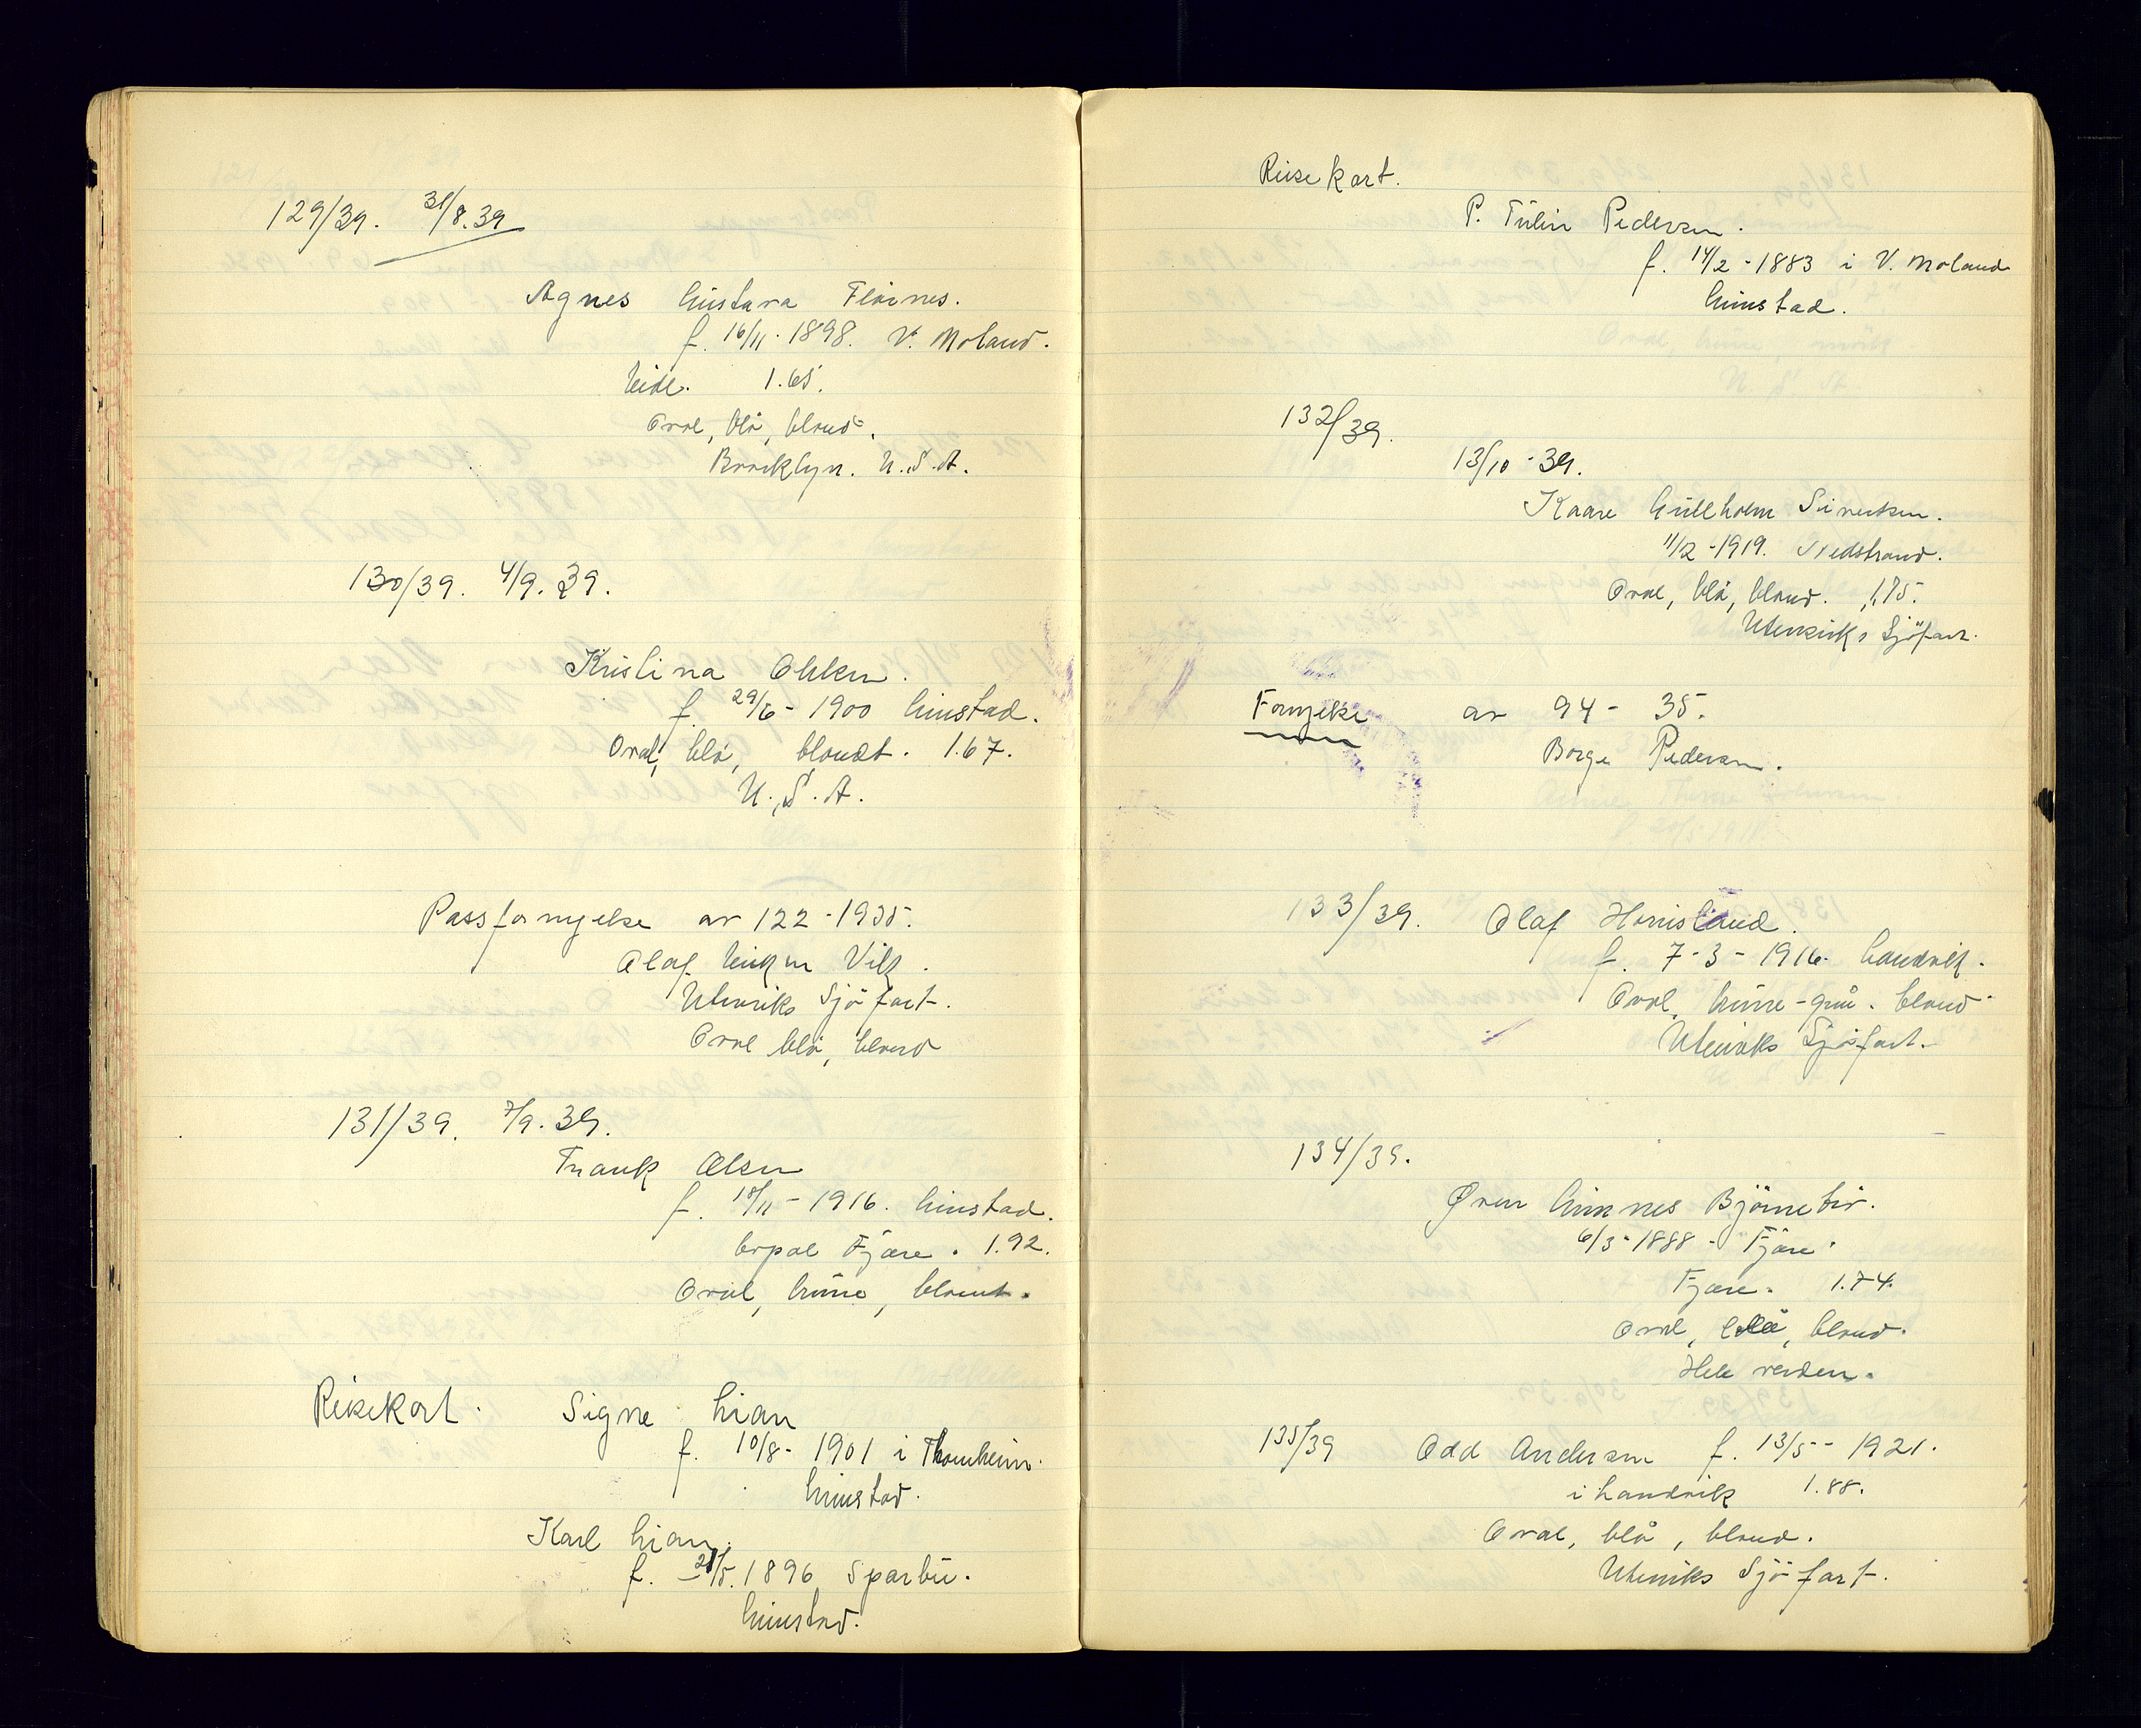 129/39. 31/8.39
Agnes Gustava Fløines.
f. 16/11-1898. V. Moland.
Eide. 1.65.
Oval, blå, blond.
Brooklyn. U.S.A.
130/39. 4/9.39.
Kristina Olsen.
f. 29/6-1900 Grimstad.
Oval, blå, blondt. 1.67.
U.S.A.
Passfornyelse av 122-1935.
Olaf Vik.
Utenriks Sjöfart.
Oval blå, blond
131/39. 7/9.39.
Frank Olsen
f. 18/11-1916. Grimstad.
Fjære. 1.92.
Oval, brune, blondt.
Reisekort. Signe Lian
f. 10/8-1901 i Trondheim.
Grimstad.
Karl Lian.
f. 21/5.1896 Sparbu.
Grimstad.
Reisekort.
P. Tulin Pedersen.
f. 14/2-1883 i V. Moland
Grimstad.
132/39.
13/10-39.
Kaare Gullholm Sivertsen.
11/2-1919. Nedstrand.
Oval, blå, blond. 1.75.
Utenriks Sjöfart.
Fornyelse av 94-35.
Borge Pedersen.
133/39. Olaf Hørrisland.
f. 7-3-1916. Landvik.
Oval, brune-grå. blond
Utenriks Sjöfart.
134/39.
Øven Gunnes Björnebo.
6/3-1888 - Fjære.
Fjære. 1.74.
Oval, blå, blond.
Hele verden.
135/39 Odd Andersen f. 13/5-1921.
i Landvik 1.88.
Oval, blå, blond.
Utenriks Sjöfart.